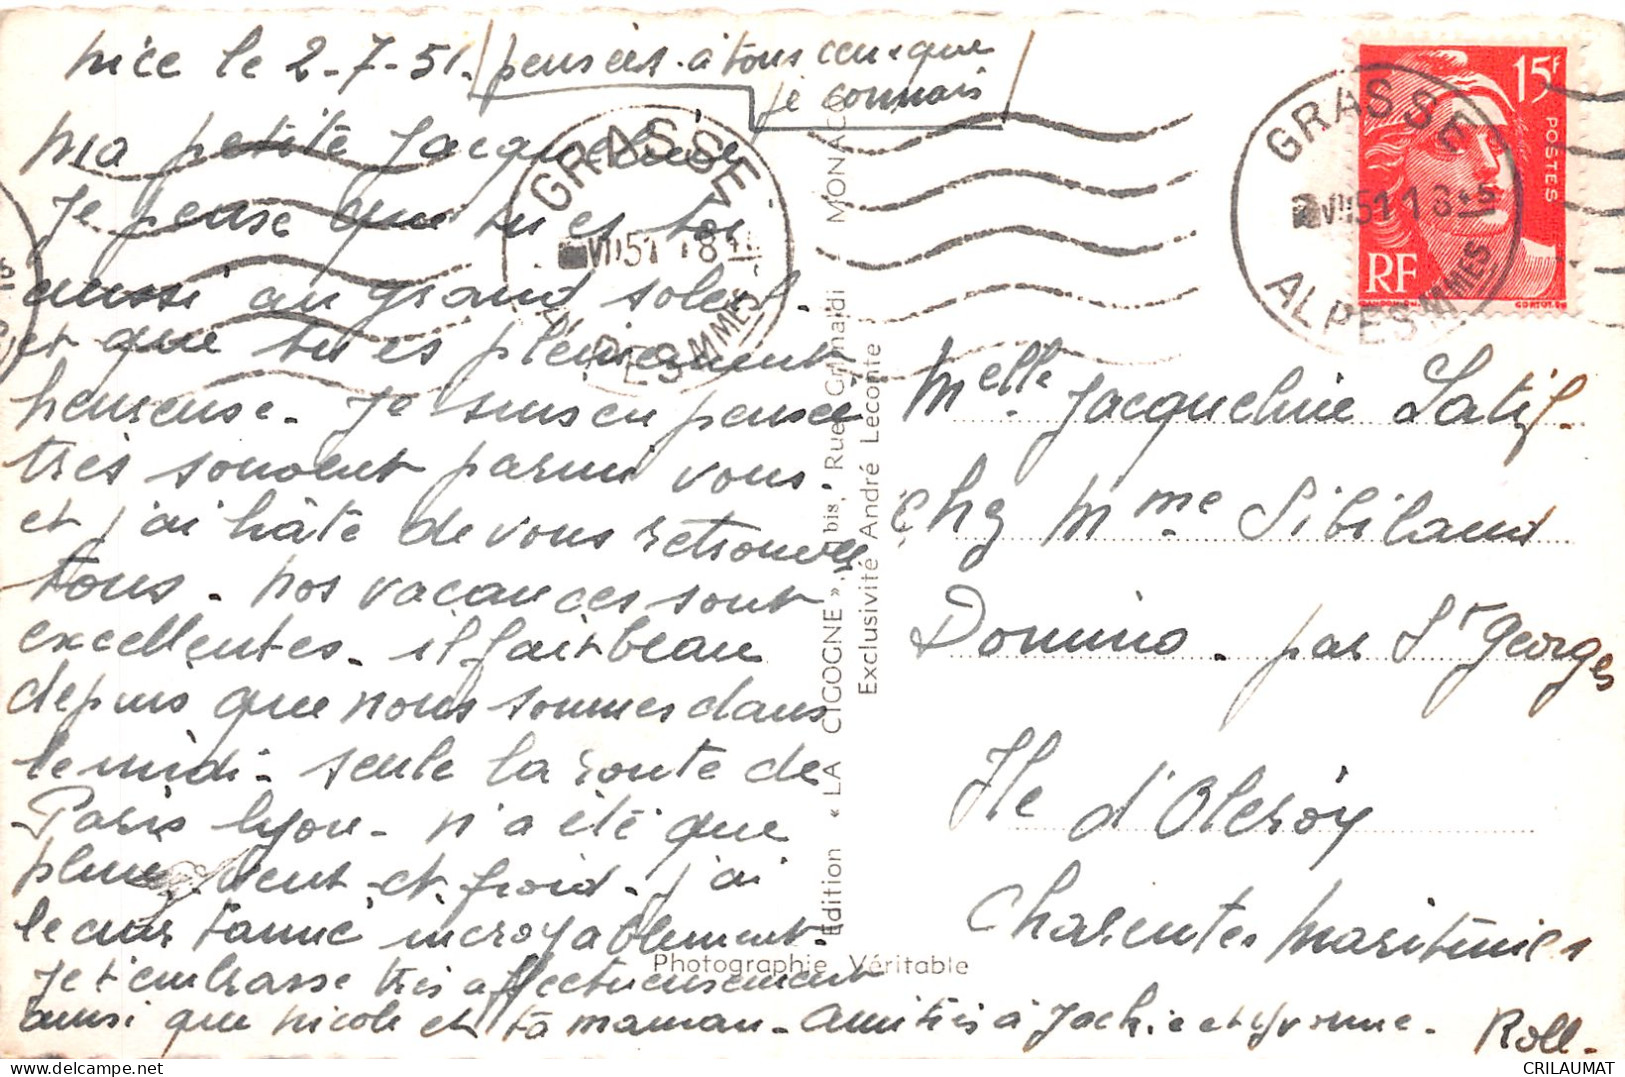 Nice le 2-7-51.
pensées à tous ceux que
je connais
Ma petite Jacqueline
Je pense que tu es toi
aussi au grand soleil.
et que tu es pleinement
heureuse. Je suis en pensée
très souvent parmi vous.
et j'ai hâte de vous retrouver
tous. Nos vacances sont
excellentes. il fait beau
depuis que nous sommes dans
le midi - seule la route de
Paris Lyon - n'a été que
pluie, vent et froid - j'ai
le cuir tanné incroyablement.
Je t'embrasse très affectueusement
ainsi que Nicole et ta maman - amitiés à Jackie et Yvonne.
Roll.
Edition « LA CIGOGNE », bis, Rue Grimaldi MONACO
Exclusivité André Leconte
Photographie Véritable
GRASSE
VII 51
ALPES MMES
GRASSE
VII 51
ALPES MMES
15F
POSTES
RF
Melle Jacqueline Latif.
Chez Mme Sibilaud
Domino. par St Georges
Ile d'Oleroy
Charentes Maritimes
CRILAUMAT